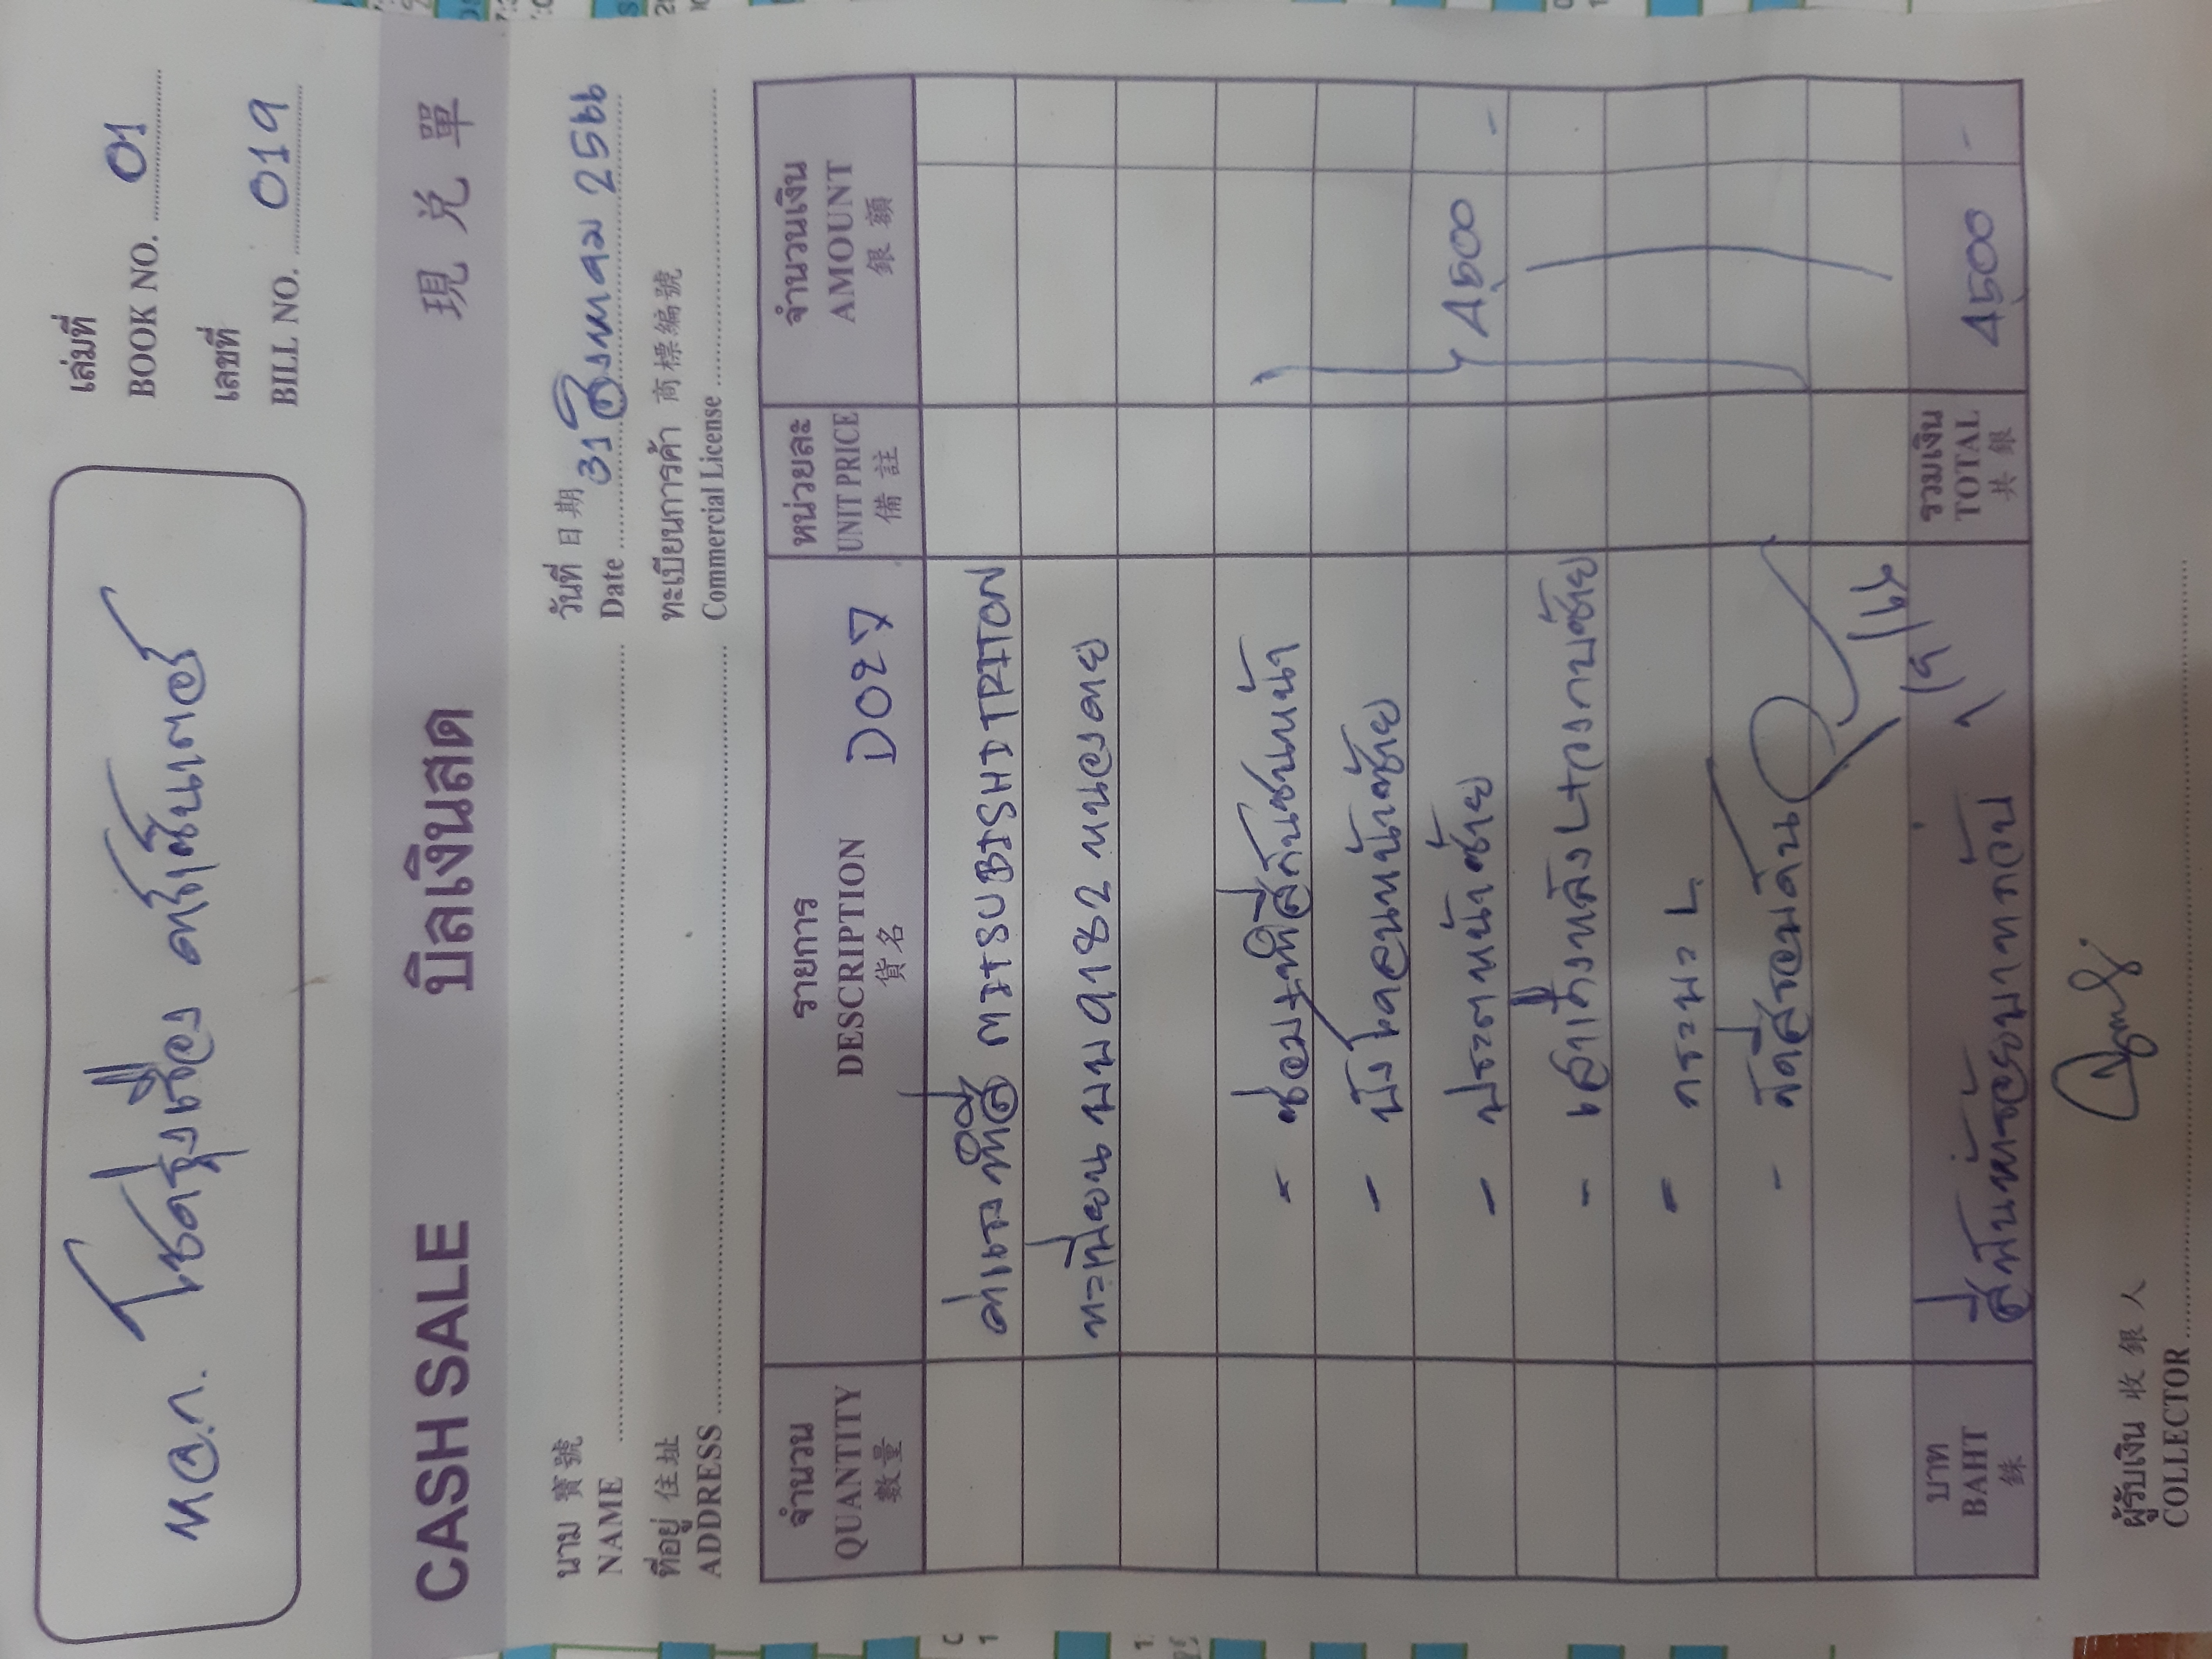 เล่มที่
BOOK NO. 01
เลขที่
BILL NO. 019
หจก. โชครุ่งเรือง คาร์เซ็นเตอร์
CASH SALE บิลเงินสด 現兑單
นาม 寶號
NAME
วันที่ 日期
Date 31 สิงหาคม 2566
ที่อยู่ 住址
ADDRESS
ทะเบียนการค้า 商標編號
Commercial License
จำนวน รายการ หน่วยละ จำนวนเงิน
QUANTITY DESCRIPTION UNIT PRICE AMOUNT
數量 貨名 備註 銀額
ค่าแรงทำสี MITSUBISHI TRITON
ทะเบียน ผบ 9182 หนองคาย
- ซ่อม+ทำสีกันชนหน้า
- บังโคลนหน้าซ้าย
- ประตูหน้าซ้าย 4,500 -
- กระบะ L
- ขัดสีรอบคัน
บาท รวมเงิน
BAHT สี่พันห้าร้อยบาทถ้วน TOTAL 4,500 -
銖 共銀
ผู้รับเงิน 收銀人
COLLECTOR